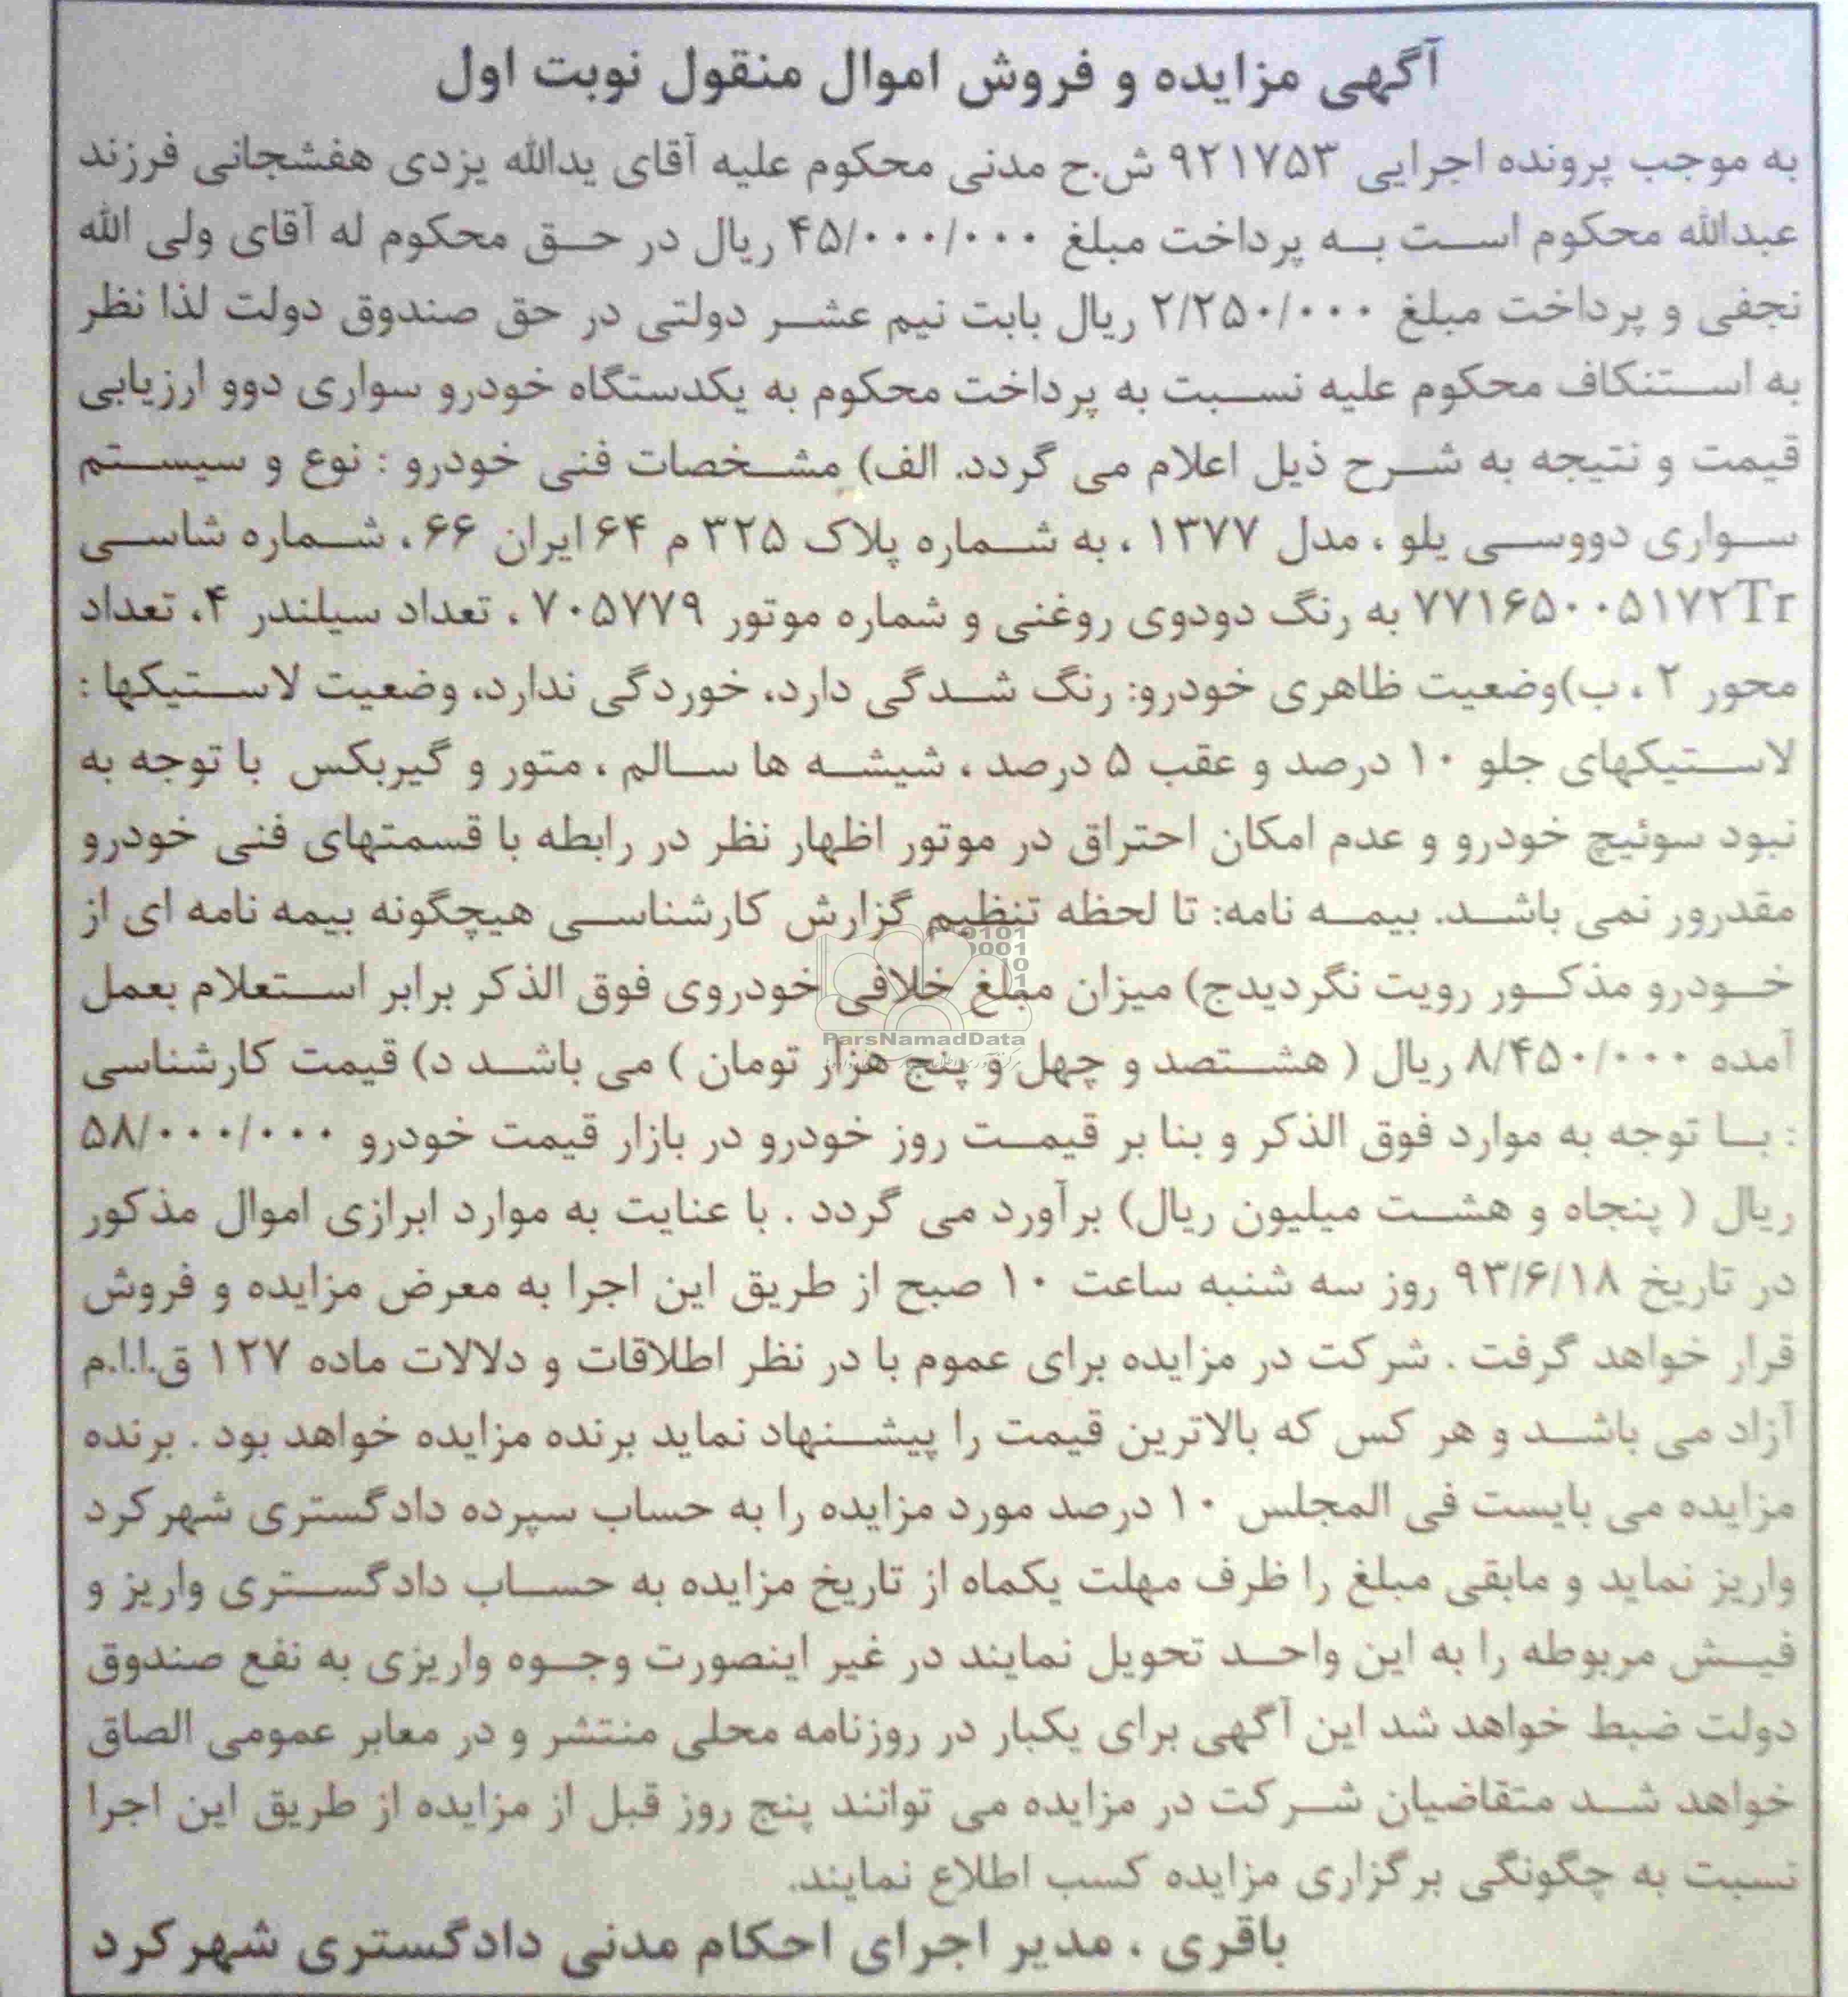 آگهی مزایده و فروش اموال منقول نوبت اول
به موجب پرونده اجرایی ۹۲۱۷۵۳ ش.ح مدنی محکوم علیه آقای یدالله یزدی هفشجانی فرزند
عبدالله محکوم است به پرداخت مبلغ ۴۵/۰۰۰/۰۰۰ ریال در حق محکوم له آقای ولی الله
نجفی و پرداخت مبلغ ۲/۲۵۰/۰۰۰ ریال بابت نیم عشر دولتی در حق صندوق دولت لذا نظر
به استنکاف محکوم علیه نسبت به پرداخت محکوم به یکدستگاه خودرو سواری دوو ارزیابی
قیمت و نتیجه به شرح ذیل اعلام می گردد. الف) مشخصات فنی خودرو : نوع و سیستم
سواری دووسی یلو ، مدل ۱۳۷۷ ، به شماره پلاک ۳۲۵ م ۶۴ ایران ۶۶ ، شماره شاسی
۷۷۱۶۵۰۰۵۱۷۲Tr به رنگ دودوی روغنی و شماره موتور ۷۰۵۷۷۹ ، تعداد سیلندر ۴، تعداد
محور ۲ ، ب)وضعیت ظاهری خودرو: رنگ شدگی دارد، خوردگی ندارد، وضعیت لاستیکها :
لاستیکهای جلو ۱۰ درصد و عقب ۵ درصد ، شیشه ها سالم ، متور و گیربکس با توجه به
نبود سوئیچ خودرو و عدم امکان احتراق در موتور اظهار نظر در رابطه با قسمتهای فنی خودرو
مقدرور نمی باشد. بیمه نامه: تا لحظه تنظیم گزارش کارشناسی هیچگونه بیمه نامه ای از
خودرو مذکور رویت نگردیدج) میزان مبلغ خلافی خودروی فوق الذکر برابر استعلام بعمل
آمده ۸/۴۵۰/۰۰۰ ریال ( هشتصد و چهل و پنج هزار تومان ) می باشد د) قیمت کارشناسی
: با توجه به موارد فوق الذکر و بنا بر قیمت روز خودرو در بازار قیمت خودرو ۵۸/۰۰۰/۰۰۰
ریال ( پنجاه و هشت میلیون ریال) برآورد می گردد . با عنایت به موارد ابرازی اموال مذکور
در تاریخ ۹۳/۶/۱۸ روز سه شنبه ساعت ۱۰ صبح از طریق این اجرا به معرض مزایده و فروش
قرار خواهد گرفت . شرکت در مزایده برای عموم با در نظر اطلاقات و دلالات ماده ۱۲۷ ق.ا.ا.م
آزاد می باشد و هر کس که بالاترین قیمت را پیشنهاد نماید برنده مزایده خواهد بود . برنده
مزایده می بایست فی المجلس ۱۰ درصد مورد مزایده را به حساب سپرده دادگستری شهرکرد
واریز نماید و مابقی مبلغ را ظرف مهلت یکماه از تاریخ مزایده به حساب دادگستری واریز و
فیش مربوطه را به این واحد تحویل نمایند در غیر اینصورت وجوه واریزی به نفع صندوق
دولت ضبط خواهد شد این آگهی برای یکبار در روزنامه محلی منتشر و در معابر عمومی الصاق
خواهد شد متقاضیان شرکت در مزایده می توانند پنج روز قبل از مزایده از طریق این اجرا
نسبت به چگونگی برگزاری مزایده کسب اطلاع نمایند.
باقری ، مدیر اجرای احکام مدنی دادگستری شهرکرد
ParsNamadData